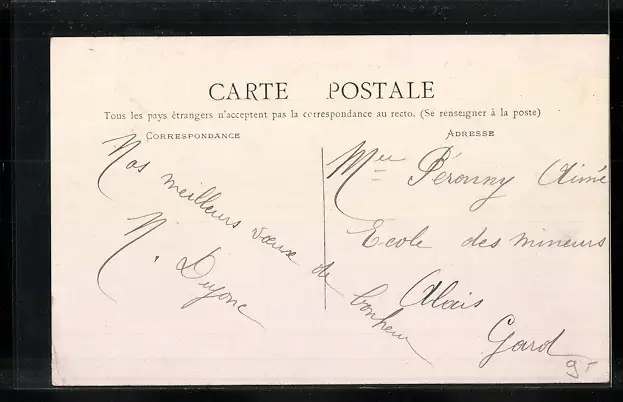 CARTE POSTALE
Tous les pays étrangers n'acceptent pas la correspondance au recto. (Se renseigner à la poste)
CORRESPONDANCE
Nos meilleurs vœux de bonheur
N. Dujonc
ADRESSE
Mll Péronny Aimé
Ecole des mineurs
Alais
Gard
9-